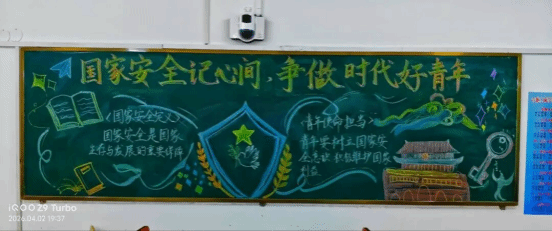 国家安全记心间,争做时代好青年
《国家安全定义》
国家安全是国家
生存与发展的重要保障
《青年使命担当》
青年要树立国家安
全意识 积极维护国家
利益
iQOO Z9 Turbo
2026.04.02 19:37